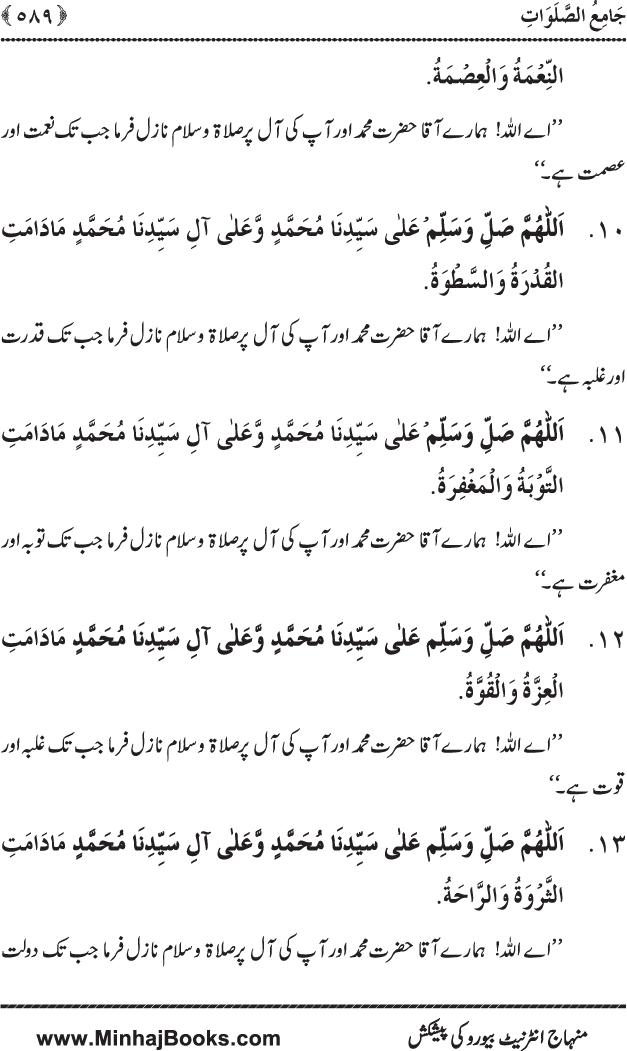 جَامِعُ الصَّلَوَاتِ ﴿۵۸۹﴾
النِّعْمَةُ وَالْعِصْمَةُ.
’’اے اللہ! ہمارے آقا حضرت محمد اور آپ کی آل پر صلاۃ وسلام نازل فرما جب تک نعمت اور
عصمت ہے۔‘‘
۱۰. اَللّٰهُمَّ صَلِّ وَسَلِّمْ عَلٰی سَيِّدِنَا مُحَمَّدٍ وَّعَلٰی آلِ سَيِّدِنَا مُحَمَّدٍ مَادَامَتِ
الْقُدْرَةُ وَالسَّطْوَةُ.
’’اے اللہ! ہمارے آقا حضرت محمد اور آپ کی آل پر صلاۃ وسلام نازل فرما جب تک قدرت
اور غلبہ ہے۔‘‘
۱۱. اَللّٰهُمَّ صَلِّ وَسَلِّمْ عَلٰی سَيِّدِنَا مُحَمَّدٍ وَّعَلٰی آلِ سَيِّدِنَا مُحَمَّدٍ مَادَامَتِ
التَّوْبَةُ وَالْمَغْفِرَةُ.
’’اے اللہ! ہمارے آقا حضرت محمد اور آپ کی آل پر صلاۃ وسلام نازل فرما جب تک توبہ اور
مغفرت ہے۔‘‘
۱۲. اَللّٰهُمَّ صَلِّ وَسَلِّم عَلٰی سَيِّدِنَا مُحَمَّدٍ وَّعَلٰی آلِ سَيِّدِنَا مُحَمَّدٍ مَادَامَتِ
الْعِزَّةُ وَالْقُوَّةُ.
’’اے اللہ! ہمارے آقا حضرت محمد اور آپ کی آل پر صلاۃ وسلام نازل فرما جب تک غلبہ اور
قوت ہے۔‘‘
۱۳. اَللّٰهُمَّ صَلِّ وَسَلِّم عَلٰی سَيِّدِنَا مُحَمَّدٍ وَّعَلٰی آلِ سَيِّدِنَا مُحَمَّدٍ مَادَامَتِ
الثَّرْوَةُ وَالرَّاحَةُ.
’’اے اللہ! ہمارے آقا حضرت محمد اور آپ کی آل پر صلاۃ وسلام نازل فرما جب تک دولت
منہاج انٹرنیٹ بیورو کی پیشکش www.MinhajBooks.com